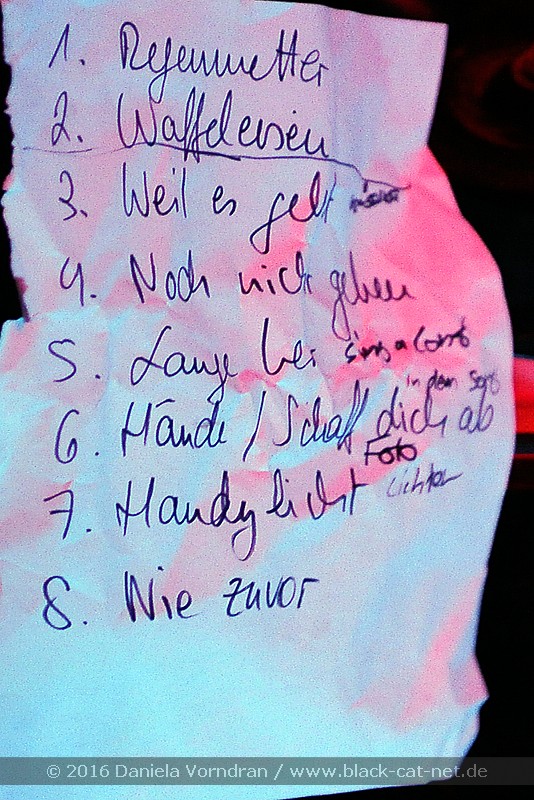 1. Regenwetter
2. Waffeleisen
3. Weil es geht
4. Noch nicht gehen
5. Lange her sing a long
in dem Song
6. Hände / Schaff dich ab
Foto
7. Handylicht Lichter
8. Nie zuvor
© 2016 Daniela Vorndran / www.black-cat-net.de